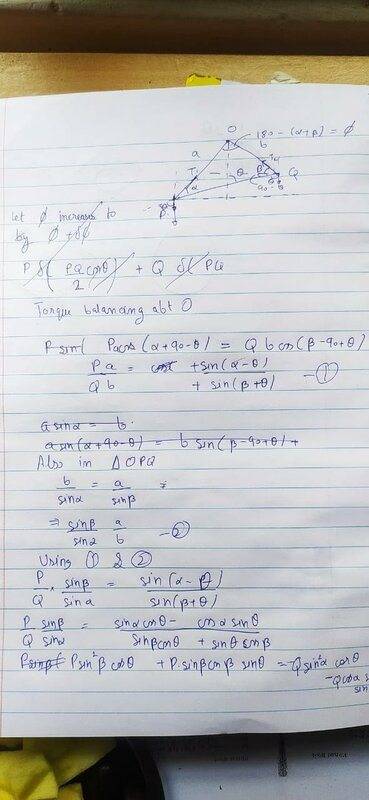 O
180 - (α+β) = ϕ
a
b
T
α
θ
β
Q
90-θ
P
Let ϕ increases to
by ϕ + δϕ
P δ(PQ cosθ / 2) + Q δ(PQ
Torque balancing abt O
P sin( Pa cos (α+90-θ) = Q b cos(β-90+θ)
Pa / Qb = +sin(α-θ) / + sin(β+θ) - ①
a sinα = b.
a sin(α+90-θ) = b sin(β-90+θ) +
Also in Δ OPQ
b / sinα = a / sinβ
⇒ sinβ / sinα a / b - ②
Using ① & ②
P / Q × sinβ / sinα = sin(α-θ) / sin(β+θ)
P sinβ / Q sinα = sinα cosθ - cosα sinθ / sinβ cosθ + sinθ cosβ
P sin²β cosθ + P. sinβ cosβ sinθ = Q sin²α cosθ
- Q cosα s
sin